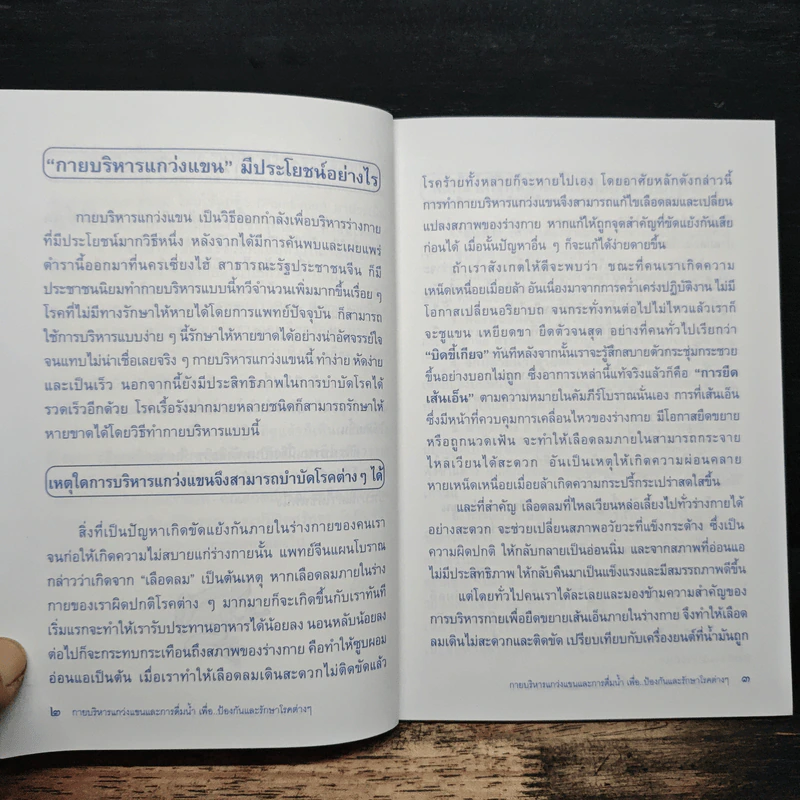 “กายบริหารแกว่งแขน” มีประโยชน์อย่างไร
กายบริหารแกว่งแขน เป็นวิธีออกกำลังเพื่อบริหารร่างกาย
ที่มีประโยชน์มากวิธีหนึ่ง หลังจากได้มีการค้นพบและเผยแพร่
ตำรานี้ออกมาที่นครเซี่ยงไฮ้ สาธารณะรัฐประชาชนจีน ก็มี
ประชาชนนิยมทำกายบริหารแบบนี้ทวีจำนวนเพิ่มมากขึ้นเรื่อย ๆ
โรคที่ไม่มีทางรักษาให้หายได้โดยการแพทย์ปัจจุบัน ก็สามารถ
ใช้การบริหารแบบง่าย ๆ นี้รักษาให้หายขาดได้อย่างน่าอัศจรรย์ใจ
จนแทบไม่น่าเชื่อเลยจริง ๆ กายบริหารแกว่งแขนนี้ ทำง่าย หัดง่าย
และเป็นเร็ว นอกจากนี้ยังมีประสิทธิภาพในการบำบัดโรคได้
รวดเร็วอีกด้วย โรคเรื้อรังมากมายหลายชนิดก็สามารถรักษาให้
หายขาดได้โดยวิธีทำกายบริหารแบบนี้
เหตุใดการบริหารแกว่งแขนจึงสามารถบำบัดโรคต่าง ๆ ได้
สิ่งที่เป็นปัญหาเกิดขัดแย้งกันภายในร่างกายของคนเรา
จนก่อให้เกิดความไม่สบายแก่ร่างกายนั้น แพทย์จีนแผนโบราณ
กล่าวว่าเกิดจาก “เลือดลม” เป็นต้นเหตุ หากเลือดลมภายในร่าง
กายของเราผิดปกติโรคต่าง ๆ มากมายก็จะเกิดขึ้นกับเราทันที
เริ่มแรกจะทำให้เรารับประทานอาหารได้น้อยลง นอนหลับน้อยลง
ต่อไปก็จะกระทบกระเทือนถึงสภาพของร่างกาย คือทำให้ซูบผอม
อ่อนแอเป็นต้น เมื่อเราทำให้เลือดลมเดินสะดวกไม่ติดขัดแล้ว
๒ กายบริหารแกว่งแขนและการดื่มน้ำ เพื่อ..ป้องกันและรักษาโรคต่างๆ
โรคร้ายทั้งหลายก็จะหายไปเอง โดยอาศัยหลักดังกล่าวนี้
การทำกายบริหารแกว่งแขนจึงสามารถแก้ไขเลือดลมและเปลี่ยน
แปลงสภาพของร่างกาย หากแก้ให้ถูกจุดสำคัญที่ขัดแย้งกันเสีย
ก่อนได้ เมื่อนั้นปัญหาอื่น ๆ ก็จะแก้ได้ง่ายดายขึ้น
ถ้าเราสังเกตให้ดีจะพบว่า ขณะที่คนเราเกิดความ
เหน็ดเหนื่อยเมื่อยล้า อันเนื่องมาจากการคร่ำเคร่งปฏิบัติงาน ไม่มี
โอกาสเปลี่ยนอริยาบถ จนกระทั่งทนต่อไปไม่ไหวแล้วเราก็
จะชูแขน เหยียดขา ยืดตัวจนสุด อย่างที่คนทั่วไปเรียกว่า
“บิดขี้เกียจ” ทันทีหลังจากนั้นเราจะรู้สึกสบายตัวกระชุ่มกระชวย
ขึ้นอย่างบอกไม่ถูก ซึ่งอาการเหล่านี้แท้จริงแล้วก็คือ “การยืด
เส้นเอ็น” ตามความหมายในคัมภีร์โบราณนั่นเอง การที่เส้นเอ็น
ซึ่งมีหน้าที่ควบคุมการเคลื่อนไหวของร่างกาย มีโอกาสยืดขยาย
หรือถูกนวดเฟ้น จะทำให้เลือดลมภายในสามารถกระจาย
ไหลเวียนได้สะดวก อันเป็นเหตุให้เกิดความผ่อนคลาย
หายเหน็ดเหนื่อยเมื่อยล้าเกิดความกระปรี้กระเปร่าสดใสขึ้น
และที่สำคัญ เลือดลมที่ไหลเวียนหล่อเลี้ยงไปทั่วร่างกายได้
อย่างสะดวก จะช่วยเปลี่ยนสภาพอวัยวะที่แข็งกระด้าง ซึ่งเป็น
ความผิดปกติ ให้กลับกลายเป็นอ่อนนิ่ม และจากสภาพที่อ่อนแอ
ไม่มีประสิทธิภาพ ให้กลับคืนมาเป็นแข็งแรงและมีสมรรถภาพดีขึ้น
แต่โดยทั่วไปคนเราได้ละเลยและมองข้ามความสำคัญของ
การบริหารกายเพื่อยืดขยายเส้นเอ็นภายในร่างกาย จึงทำให้เลือด
ลมเดินไม่สะดวกและติดขัด เปรียบเทียบกับเครื่องยนต์ที่น้ำมันถูก
กายบริหารแกว่งแขนและการดื่มน้ำ เพื่อ..ป้องกันและรักษาโรคต่างๆ ๓